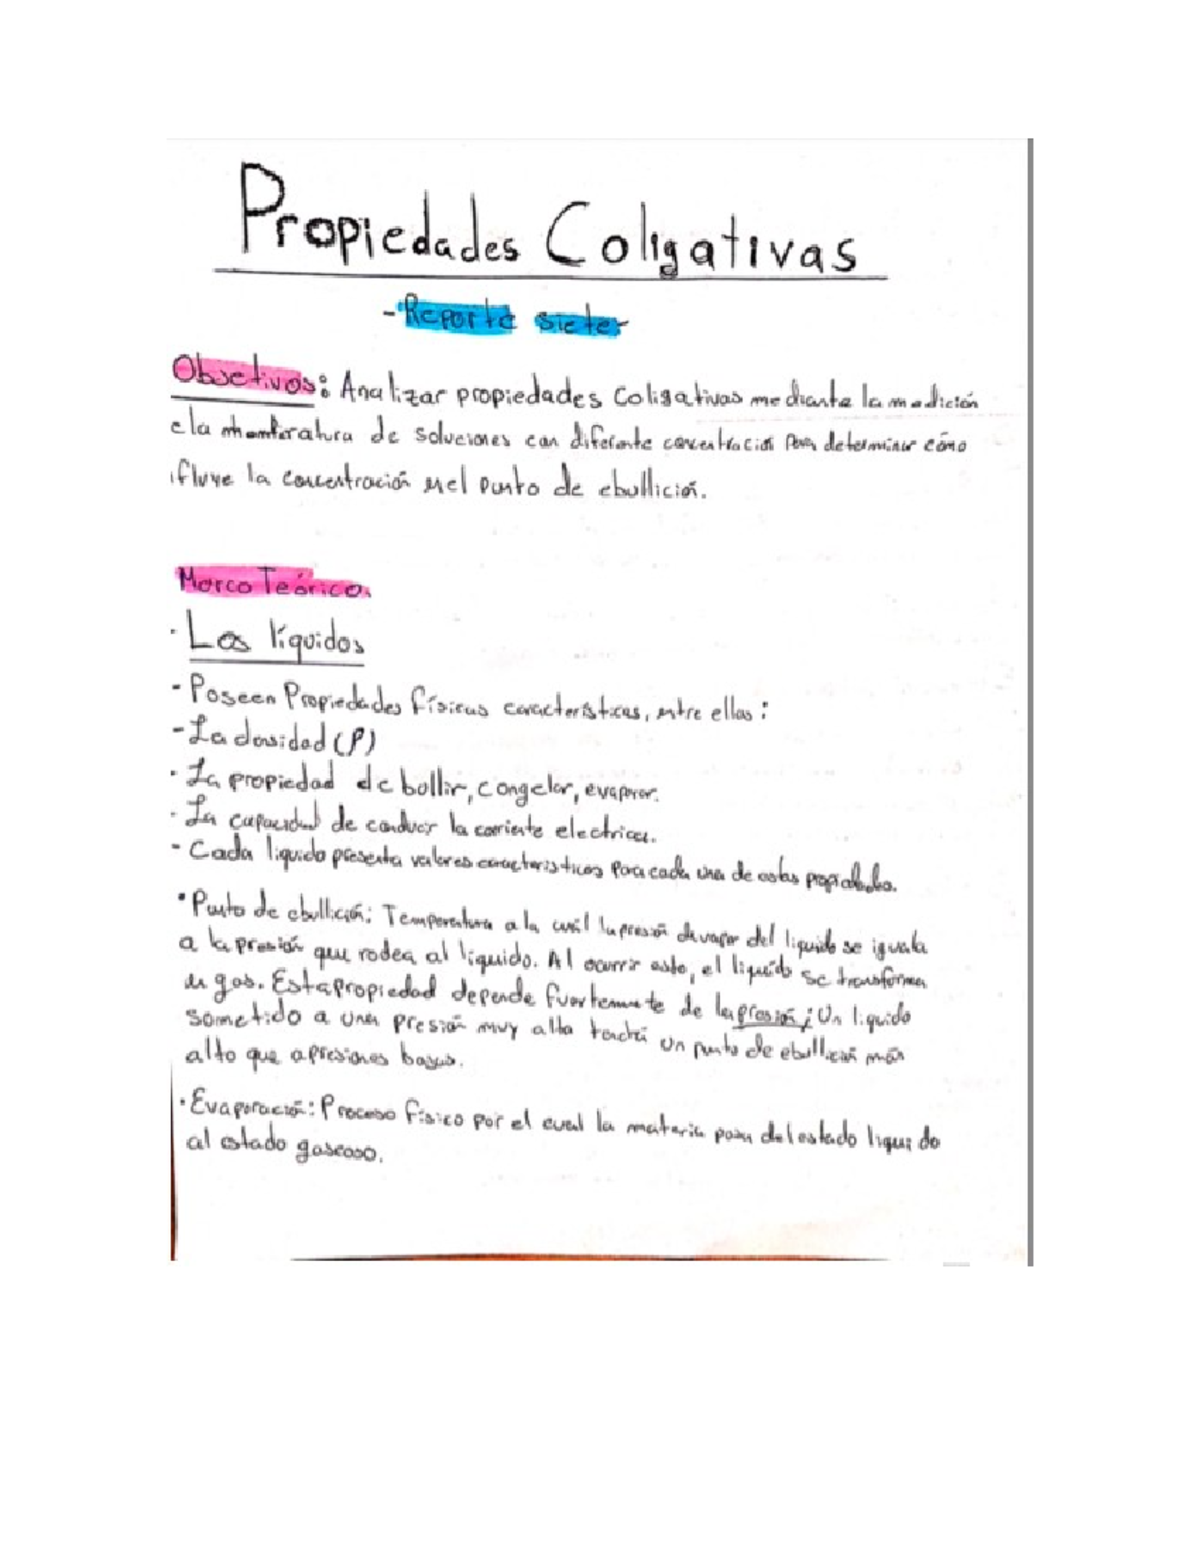 Propiedades Coligativas
- Reporte siete -
Objetivos: Analizar propiedades Coligativas mediante la medición
de la temperatura de soluciones con diferente concentración para determinar cómo
influye la concentración en el punto de ebullición.
Marco Teórico.
· Los líquidos
- Poseen Propiedades físicas características, entre ellas:
- La densidad (ρ)
· La propiedad de bullir, congelar, evaporar.
· La capacidad de conducir la corriente electrica.
- Cada liquido presenta valores caracteristicos para cada una de estas propiedades.
• Punto de ebullición: Temperatura a la cuál la presión de vapor del liquido se iguala
a la presión que rodea al líquido. Al ocurrir esto, el líquido se transforma
en gas. Esta propiedad depende fuertemente de la presión; Un liquido
sometido a una presión muy alta tendrá un punto de ebullición más
alto que a presiones bajas.
• Evaporación: Proceso físico por el cual la materia pasa del estado liquido
al estado gaseoso.